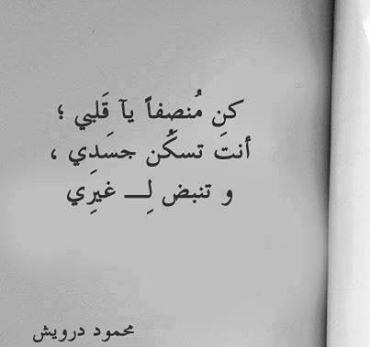 كن مُنصفاً يآ قَلبي ؛
أنتَ تسكُن جسَدِي ،
و تنبض لِـــ غيرِي
محمود درويش